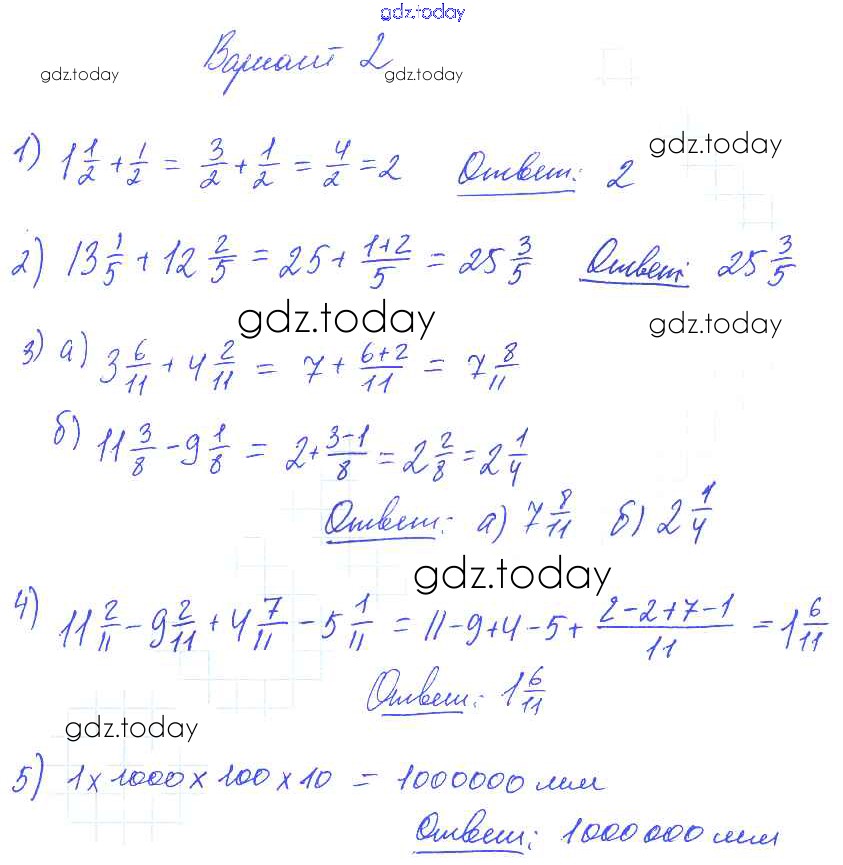 gdz.today
Вариант 2
gdz.today gdz.today
1) 1 1/2 + 1/2 = 3/2 + 1/2 = 4/2 = 2 Ответ: 2
gdz.today
2) 13 1/5 + 12 2/5 = 25 + (1+2)/5 = 25 3/5 Ответ: 25 3/5
gdz.today gdz.today
3) а) 3 6/11 + 4 2/11 = 7 + (6+2)/11 = 7 8/11
б) 11 3/8 - 9 1/8 = 2 + (3-1)/8 = 2 2/8 = 2 1/4
Ответ: а) 7 8/11 б) 2 1/4
gdz.today
4) 11 2/11 - 9 2/11 + 4 7/11 - 5 1/11 = 11-9+4-5+ (2-2+7-1)/11 = 1 6/11
Ответ: 1 6/11
gdz.today
5) 1 x 1000 x 100 x 10 = 1000000 мм
Ответ: 1000000 мм